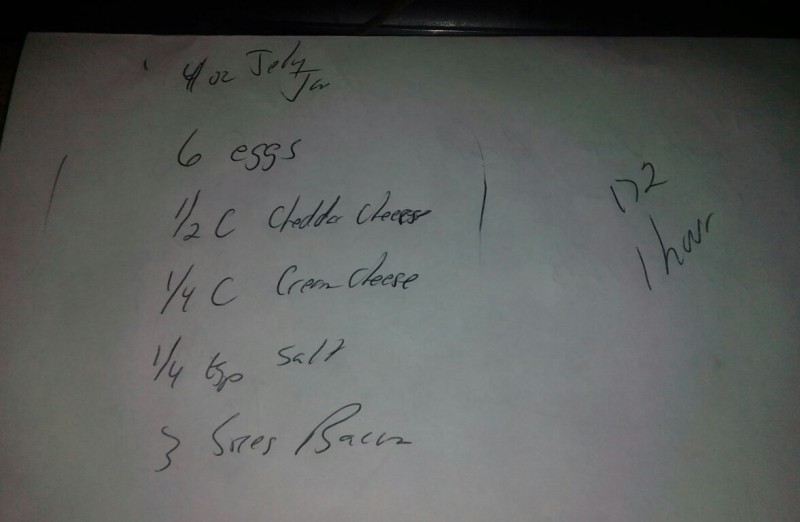 4 oz Jelly
Jar
6 eggs
1/2 C Cheddar Cheese
1/4 C Cream Cheese
1/4 tsp Salt
3 Slices Bacon
172
1 hour